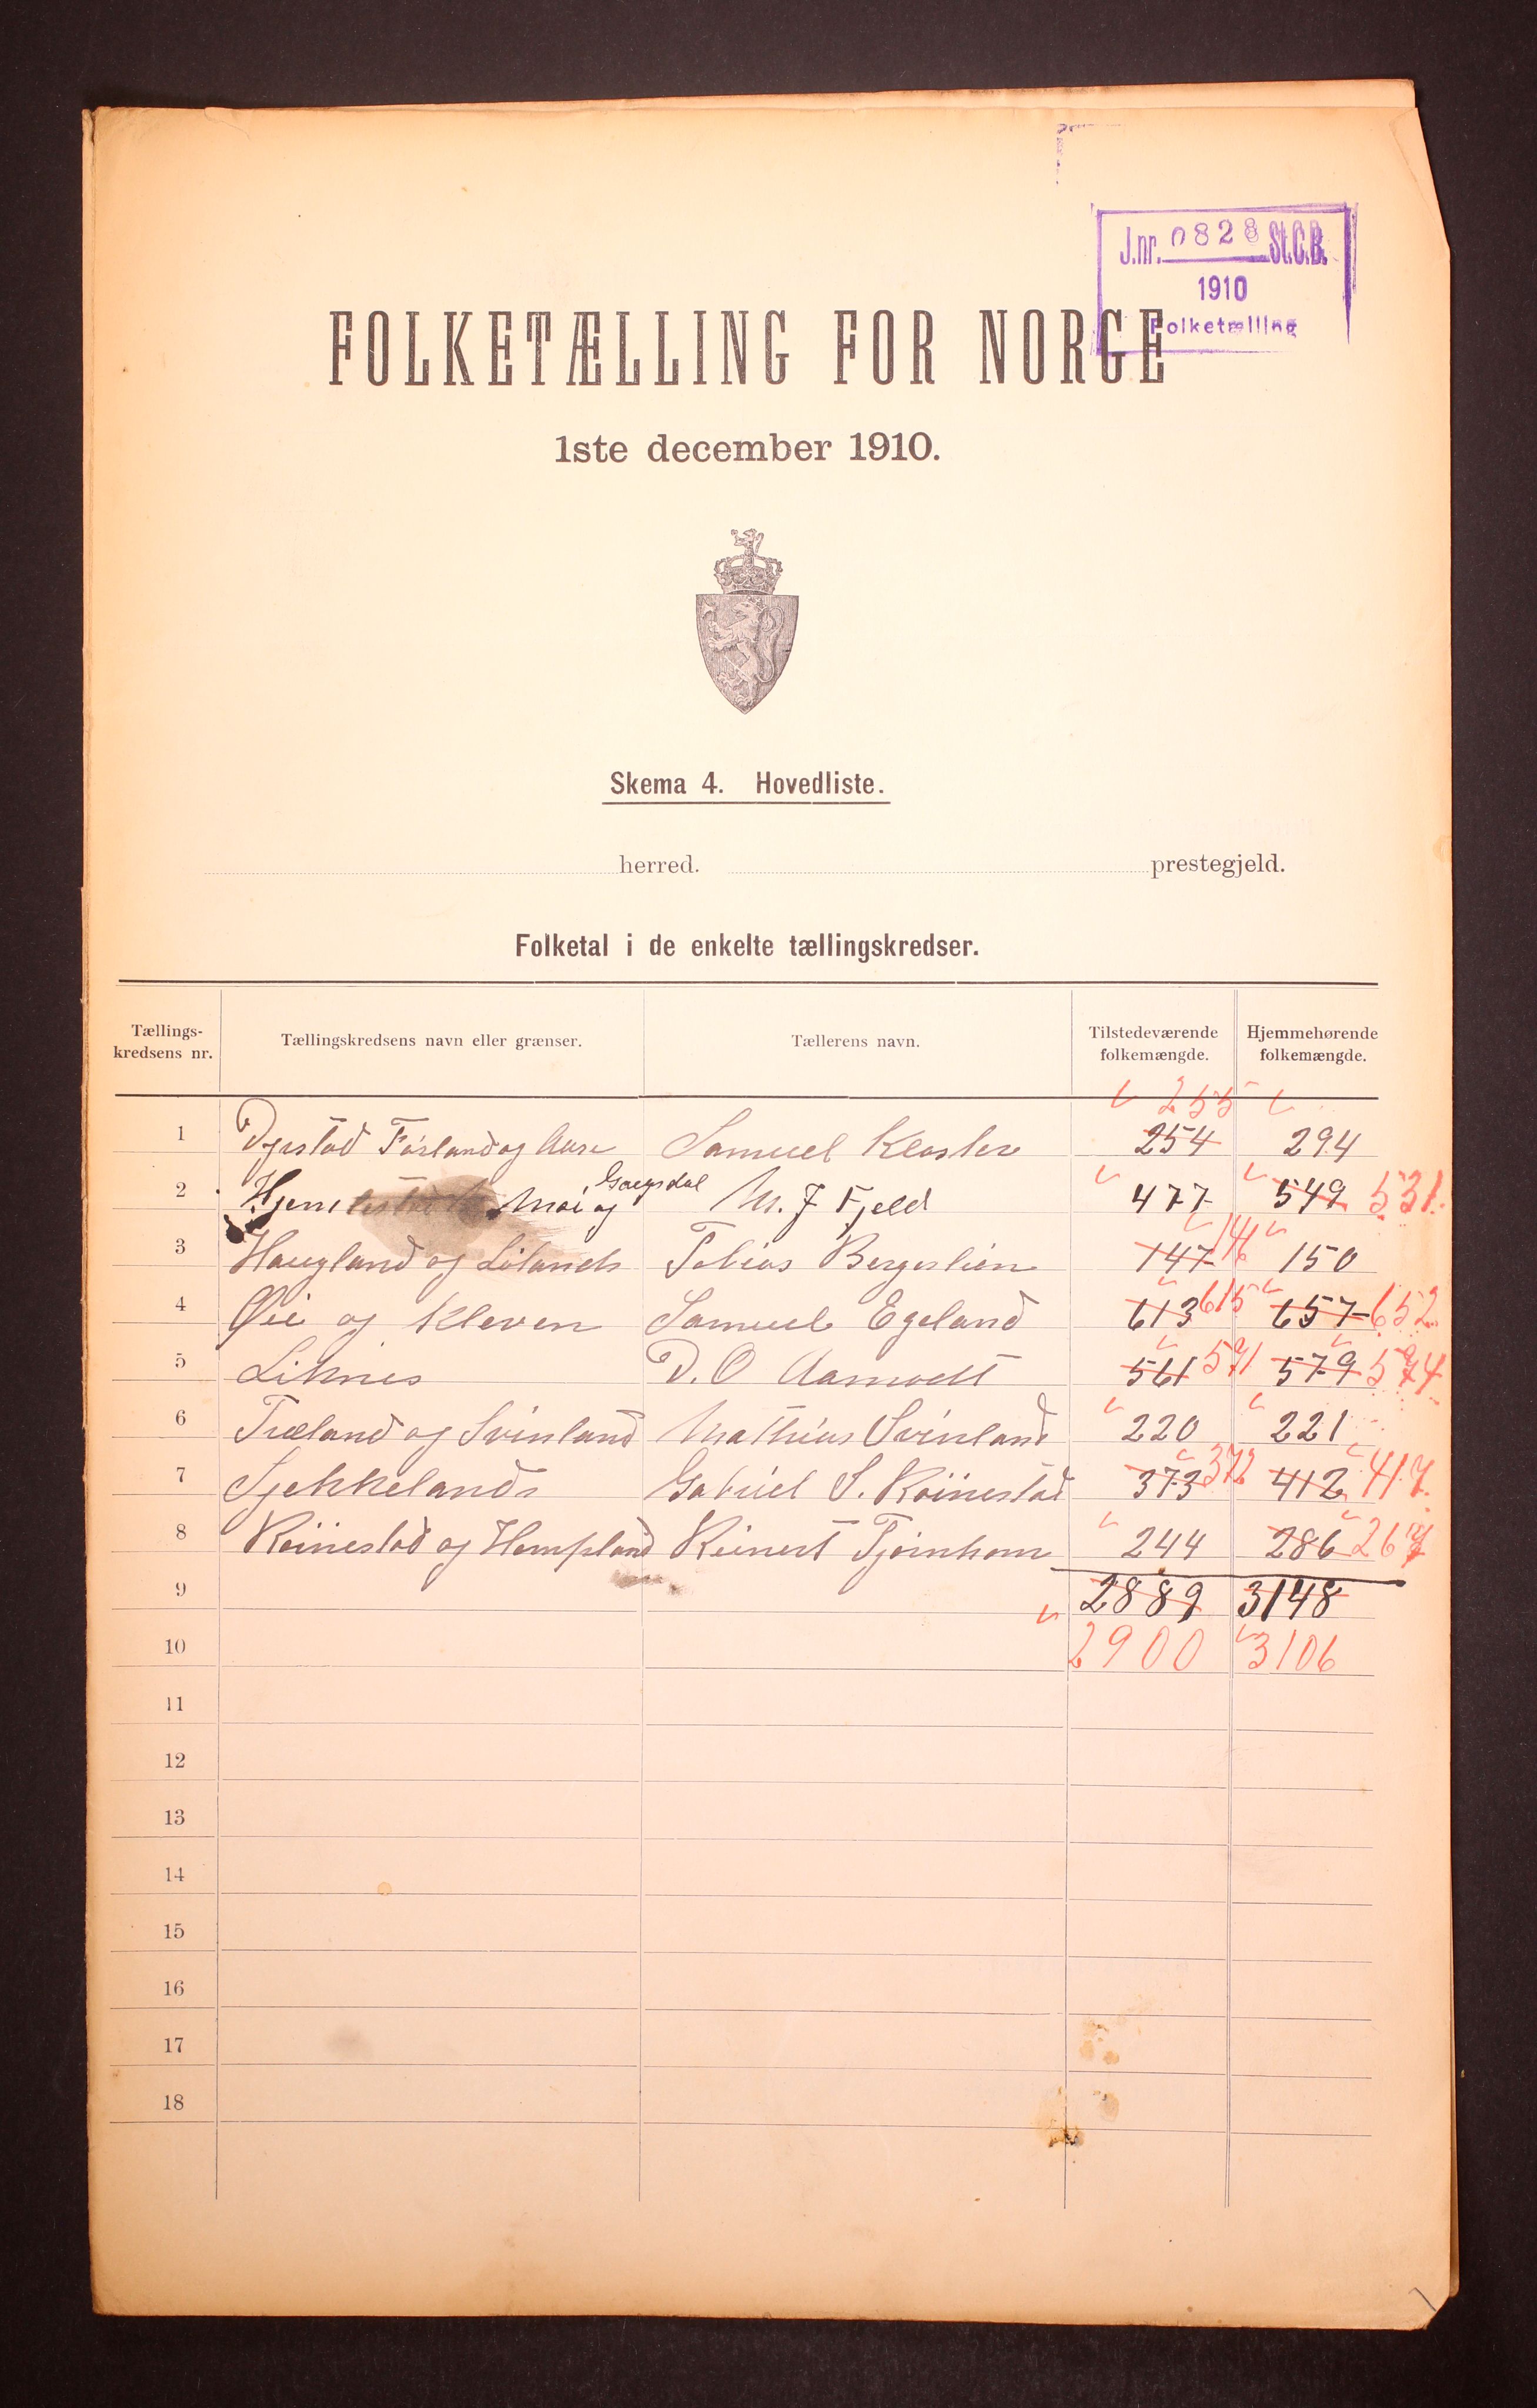 J.nr. 0828 St.C.B.
1910
Folketælling
FOLKETÆLLING FOR NORGE
1ste december 1910.
Skema 4. Hovedliste.
herred. prestegjeld.
Folketal i de enkelte tællingskredser.
Tællings-kredsens nr. Tællingskredsens navn eller grænser. Tællerens navn. Tilstedeværende folkemængde. Hjemmehørende folkemængde.
255
1 DyrstadFørland og Aase Samuel Kloster 254 294
Gaugsdal
2 Moi og M. J Fjeld 477 549 531
3 Haugland og Lølands Tobias Bergeslien 147 146 150
4 Øie og Kleven Samuel Egeland 613 615 657 652
5 Liknes D. O Aamodt 561 571 579 574
6 Træland og Svinland Mathias Svinland 220 221
7 Sjekkelands Gabriel S. Röinestad 373 372 412 417
8 Röinestad og Hompland Reinert Tjørnhom 244 286 267
9 2889 3148
10 2900 3106
11
12
13
14
15
16
17
18